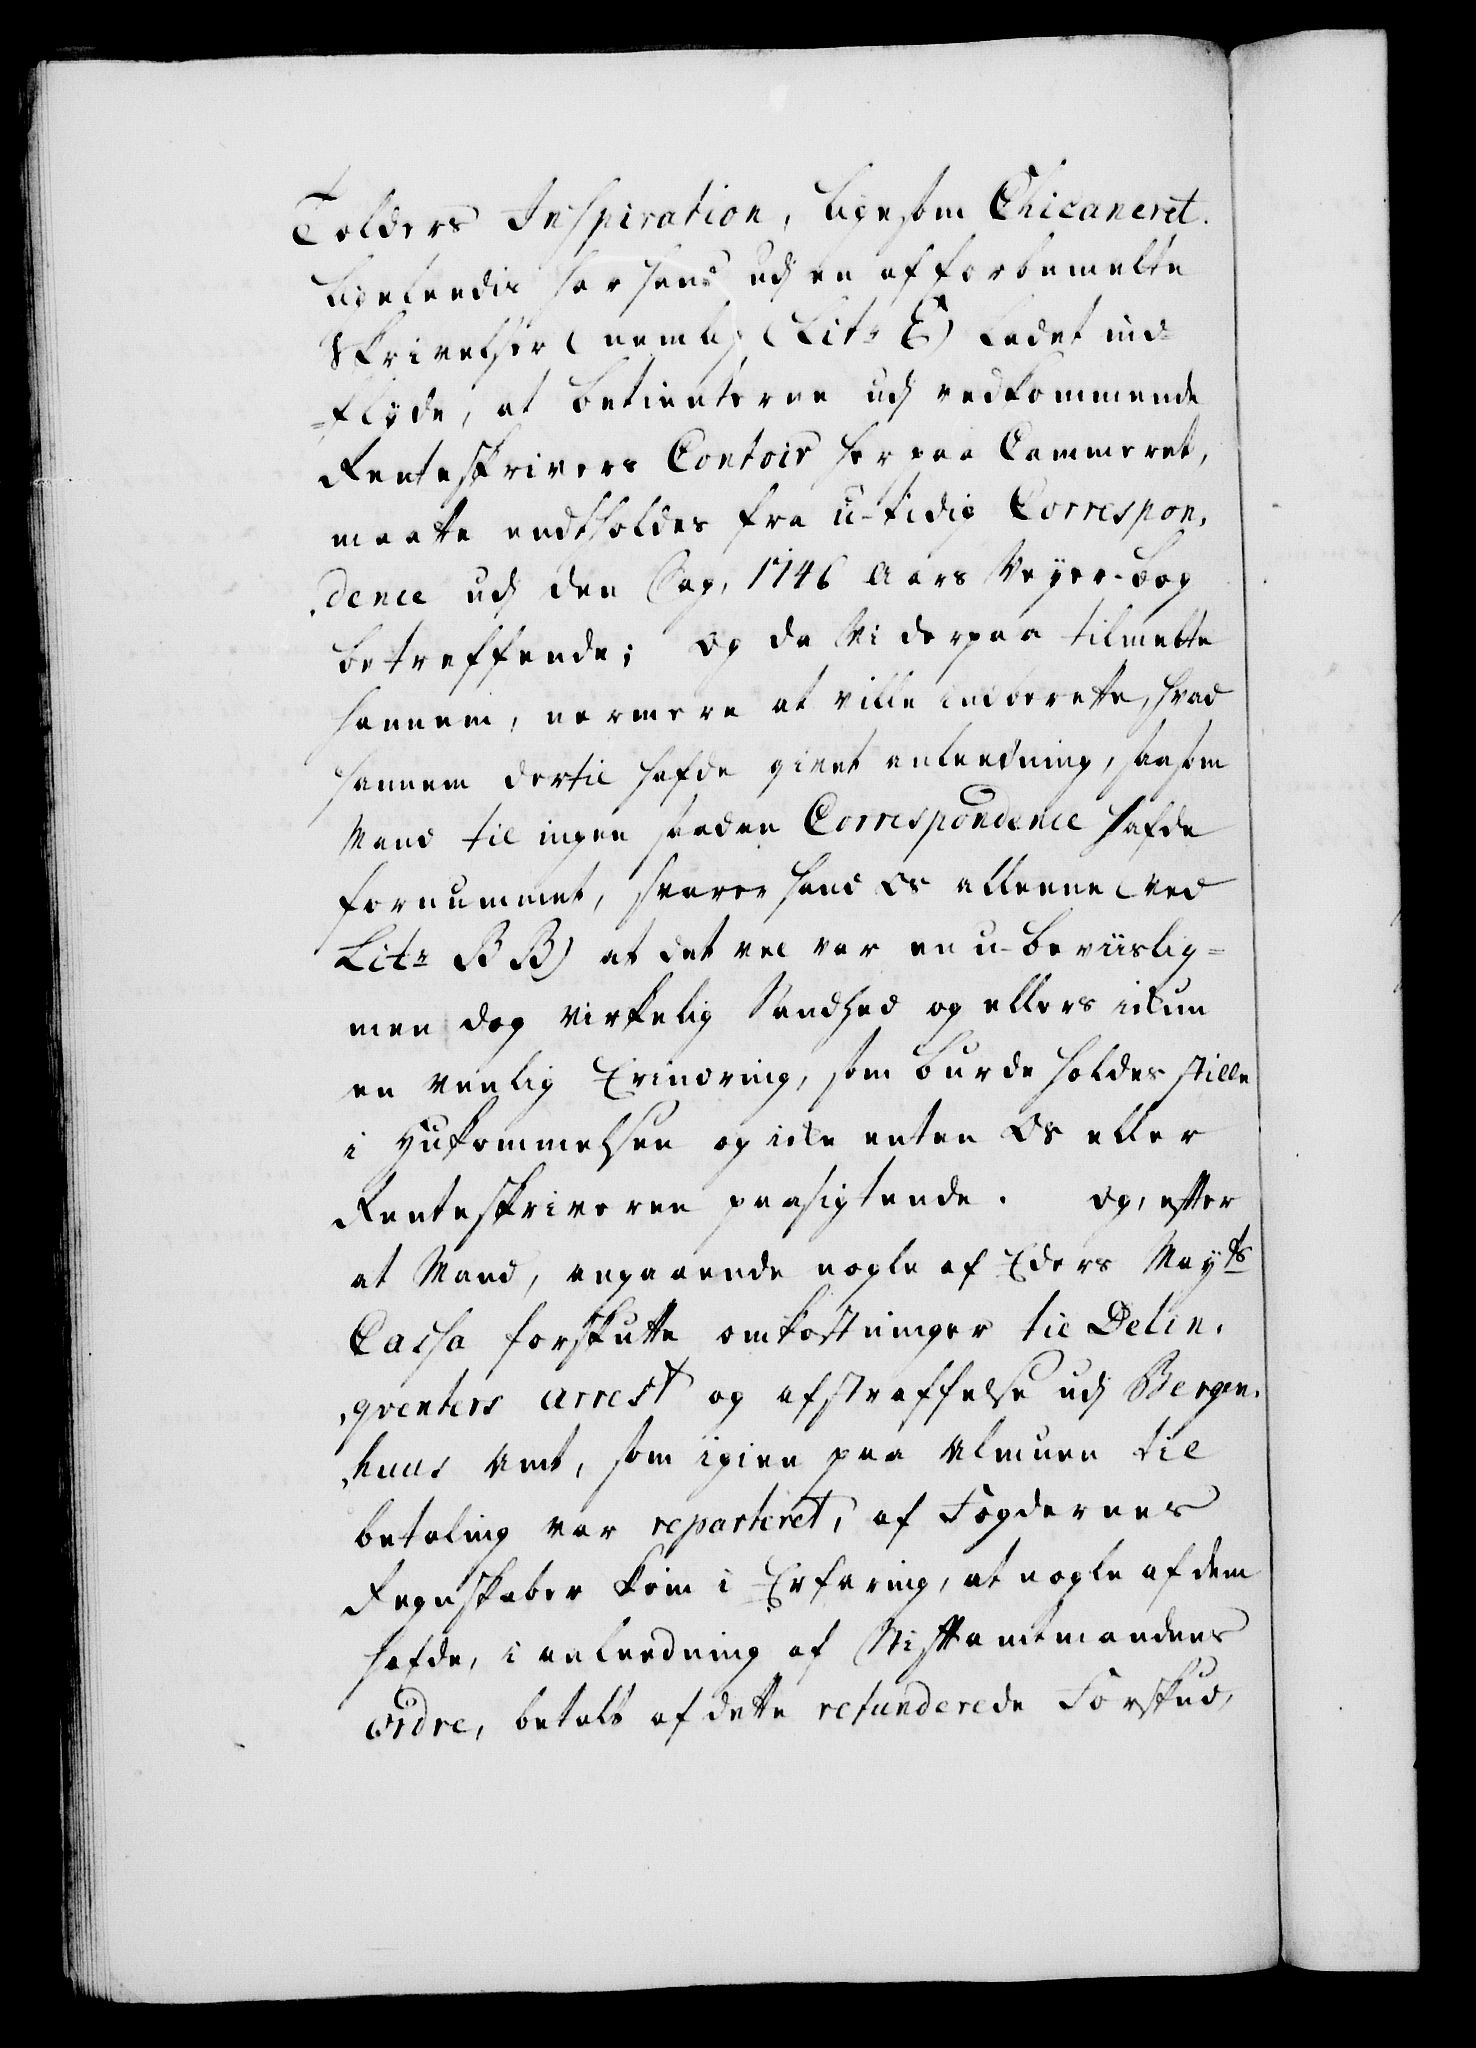 Tolders Inspiration, ligesom Chicaneret.
Ligeleedis har hand udj en af forbemelte
Skrivelser (nemlig Litr E) ladet ind-
=flyde, at betienterne udj vedkommende
Renteskrivers Contoir her paa Cammeret,
maatte endtholdes fra u-tidig Correspon,
,dence udj den Sag, 1746 Aars Vejer-bog
betreffende; og da Vi derpaa tilmelte
hannem, nermere at ville indberette, hvad
hannem dertil hafde givet anleedning, saasom
Mand til ingen saaden Correspondence hafde
fornummet, svarer hand Os alleene (ved
Litr BB) at det vel var en u-beviislig=
men dog virkelig Sandhed og ellers ickun
en venlig Erindring, som burde holdes stille
i Hukommelsen og icke enten Os eller
Renteskriveren paasigtende. Og, efter
at Mand, angaaende nogle af Eders Mayts
Cassa forskutte omkostninger til Delin,
,qventers arrest og afstraffelse udj Bergen,
,huus Amt, som igien paa Almuen til
betaling var reparteret, af Fogdernes
Regnskaber kom i Erfaring, at nogle af dem
hafde, i anleedning af Stiftamtmandens
Ordre, betalt af dette refunderede Forskud,